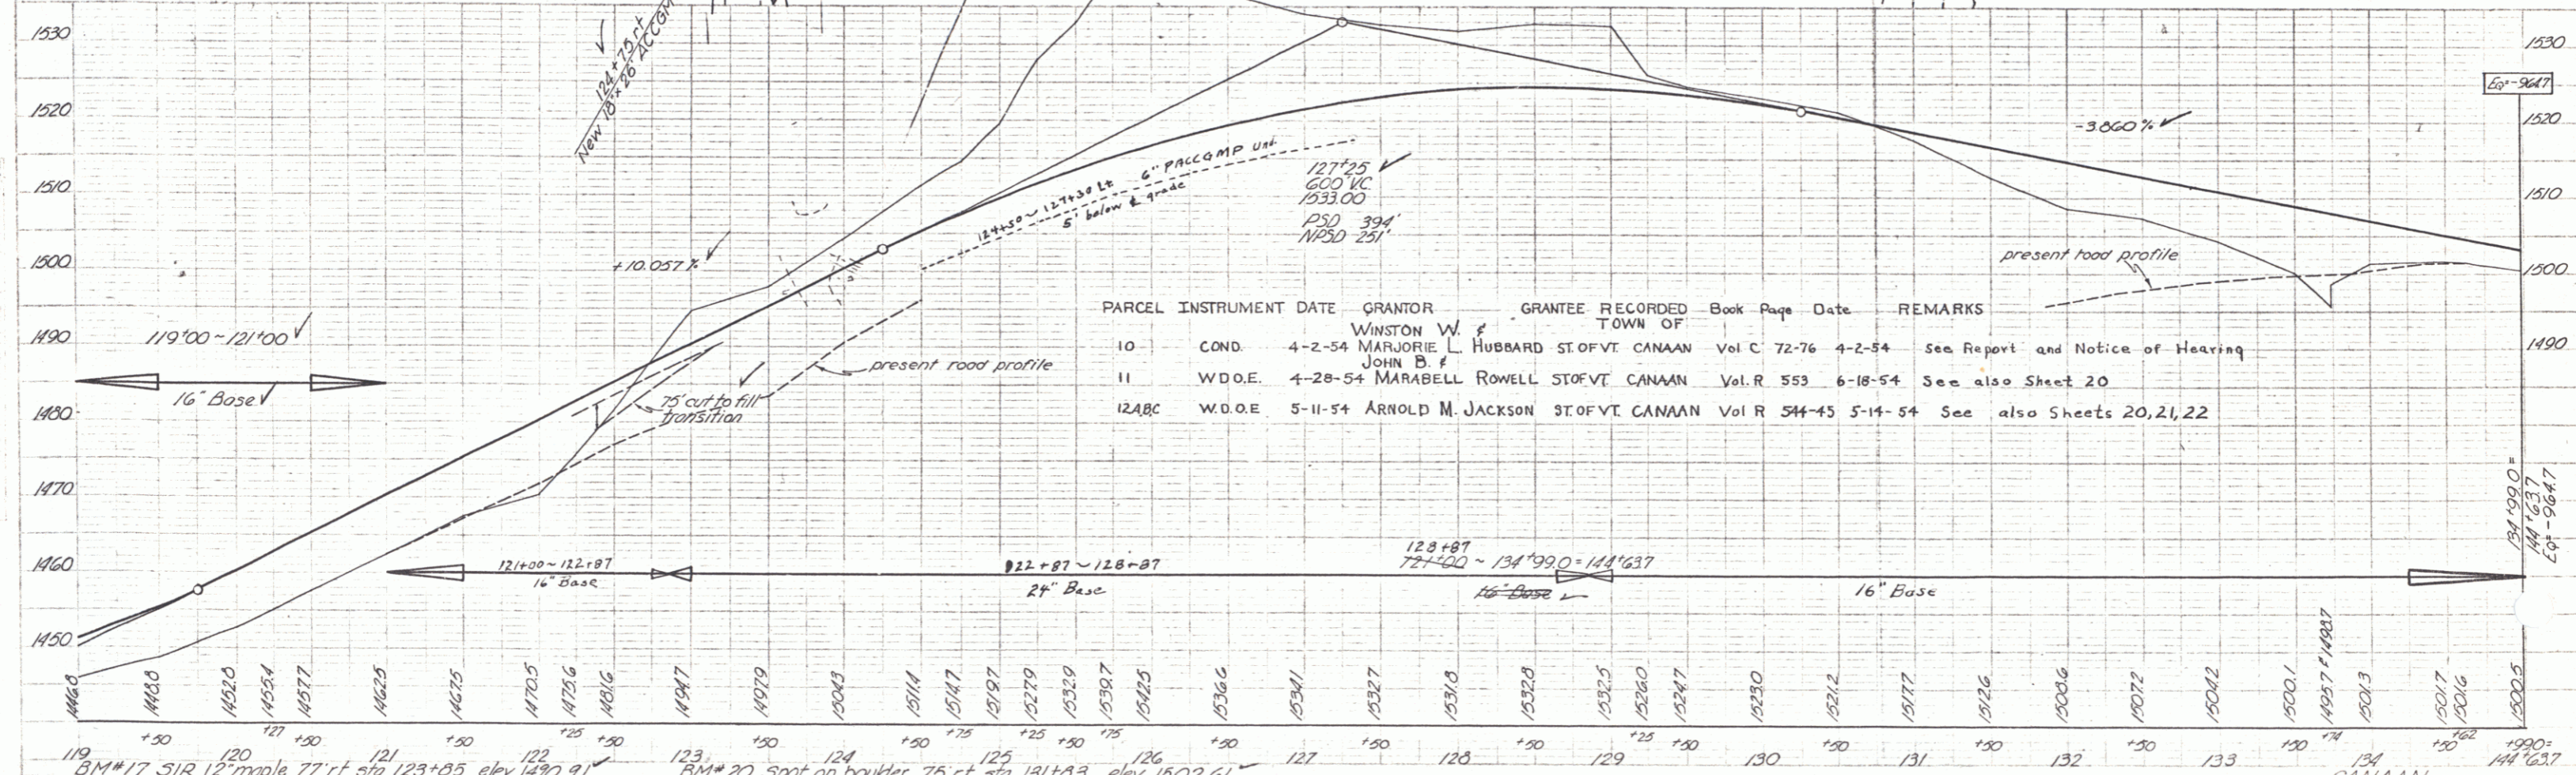 1530
1520
1510
1500
1490
1480
1470
1460
1450
124+75 rt
New 18"x26' ACCGM
+10.057%
119+00~121+00
16" Base
present road profile
75' cut to fill
transition
124+50~127+30 Lt
6" PACCGMP Und.
5' below ℄ grade
127+25
600' V.C.
1533.00
PSD 394'
NPSD 251'
-3.860%
present road profile
1530
Eq=-964.7
1520
1510
1500
1490
PARCEL INSTRUMENT DATE GRANTOR GRANTEE RECORDED Book Page Date REMARKS
TOWN OF
WINSTON W. &
10 COND. 4-2-54 MARJORIE L. HUBBARD ST.OF VT. CANAAN Vol C 72-76 4-2-54 See Report and Notice of Hearing
JOHN B. &
11 W.D.O.E. 4-28-54 MARABELL ROWELL ST OF VT. CANAAN Vol. R 553 6-18-54 See also Sheet 20
12ABC W.D.O.E 5-11-54 ARNOLD M. JACKSON ST. OF VT. CANAAN Vol R 544-45 5-14-54 See also Sheets 20,21,22
134+99.0=
144+63.7
EQ=-964.7
121+00~122+87
16" Base
122+87~128+87
24" Base
128+87
121+00 ~ 134+99.0=144+63.7
16" Base
16" Base
1446.8 1448.8 1452.8 1455.4 1457.7 1462.5 1467.5 1470.5 1475.6 1481.6 1494.7 1497.9 1504.3 1511.4 1514.7 1519.7 1527.9 1532.9 1539.7 1542.5 1536.6 1534.1 1532.7 1531.8 1532.8 1532.5 1526.0 1524.7 1523.0 1521.2 1517.7 1512.6 1508.6 1507.2 1504.2 1500.1 1495.7 & 1498.7 1501.3 1501.7 1501.6 1500.5
119 +50 120 +27 +50 121 +50 122 +25 +50 123 +50 124 +50 +75 125 +25 +50 +75 126 +50 127 +50 128 +50 129 +25 +50 130 +50 131 +50 132 +50 133 +50 +74 134 +50 +62 +99.0=
144+63.7
BM#17 SIR 12" maple 77' rt sta 123+85 elev 1490.91
BM#20 Spot on boulder 75' rt sta 131+83 elev 1502.61
CANAAN